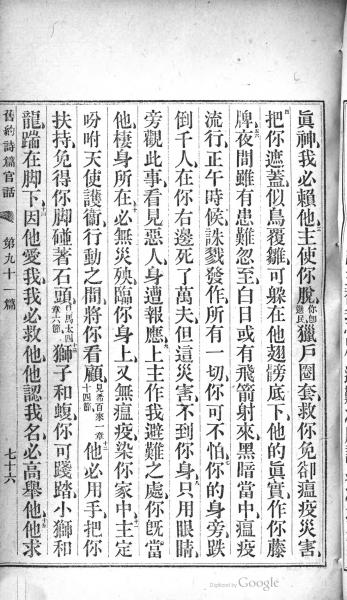 眞神我必賴他主使你脫你卽選民獵戶圈套救你免卻瘟疫災害
把你遮蓋似鳥覆雛可躲在他翅髈底下他的眞實作你藤
牌夜間雖有患難忽至白日或有飛箭射來黑暗當中瘟疫
流行正午時候誅戮發作所有一切你可不怕你的身旁跌
倒千人在你右邊死了萬夫但這災害不到你身只用眼睛
旁觀此事看見惡人身遭報應上主作我避難之處你旣當
他棲身所在必無災殃臨你身上又無瘟疫染你家中主定
吩咐天使護衞行動之間將你看顧見希百來一章十四節他必用手把你
扶持免得你脚碰著石頭見馬太四章六節獅子和蝮你可踐踏小獅和
龍踹在脚下因他愛我我必救他他認我名必高舉他他求
舊約詩篇官話 第九十一篇 七十六
Digitized by Google